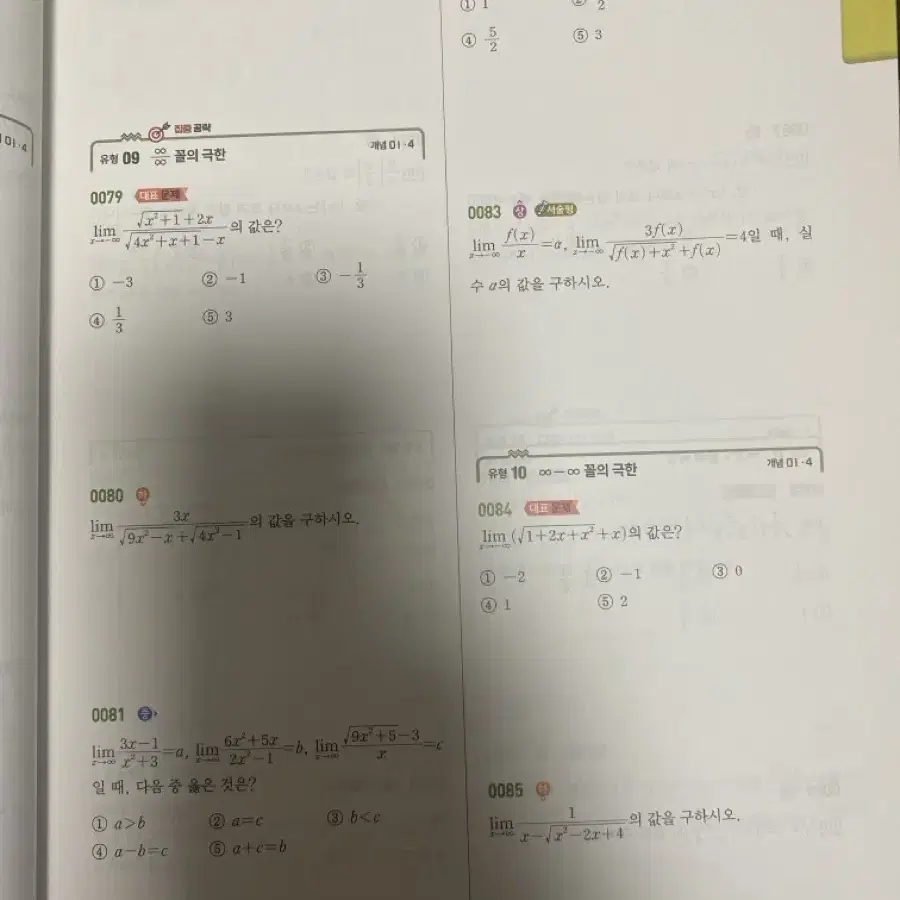 01·4
집중 공략
유형 09 ∞/∞ 꼴의 극한 개념 01·4
0079 대표 문제
lim x→-∞ (√(x²+1)+2x)/(√(4x²+x+1)-x) 의 값은?
① -3 ② -1 ③ -1/3
④ 1/3 ⑤ 3
0080 하
lim x→∞ 3x/(√(9x²-x)+√(4x²-1)) 의 값을 구하시오.
0081 중
lim x→∞ (3x-1)/(x²+3)=a, lim x→∞ (6x²+5x)/(2x²-1)=b, lim x→∞ (√(9x²+5)-3)/x=c
일 때, 다음 중 옳은 것은?
① a>b ② a=c ③ b<c
④ a-b=c ⑤ a+c=b
① 1 ② 2
④ 5/2 ⑤ 3
0083 상 서술형
lim x→-∞ f(x)/x=a, lim x→-∞ 3f(x)/(√(f(x)+x²)+f(x))=4일 때, 실
수 a의 값을 구하시오.
유형 10 ∞-∞ 꼴의 극한 개념 01·4
0084 대표 문제
lim x→-∞ (√(1+2x+x²)+x)의 값은?
① -2 ② -1 ③ 0
④ 1 ⑤ 2
0085 하
lim x→∞ 1/(x-√(x²-2x+4)) 의 값을 구하시오.